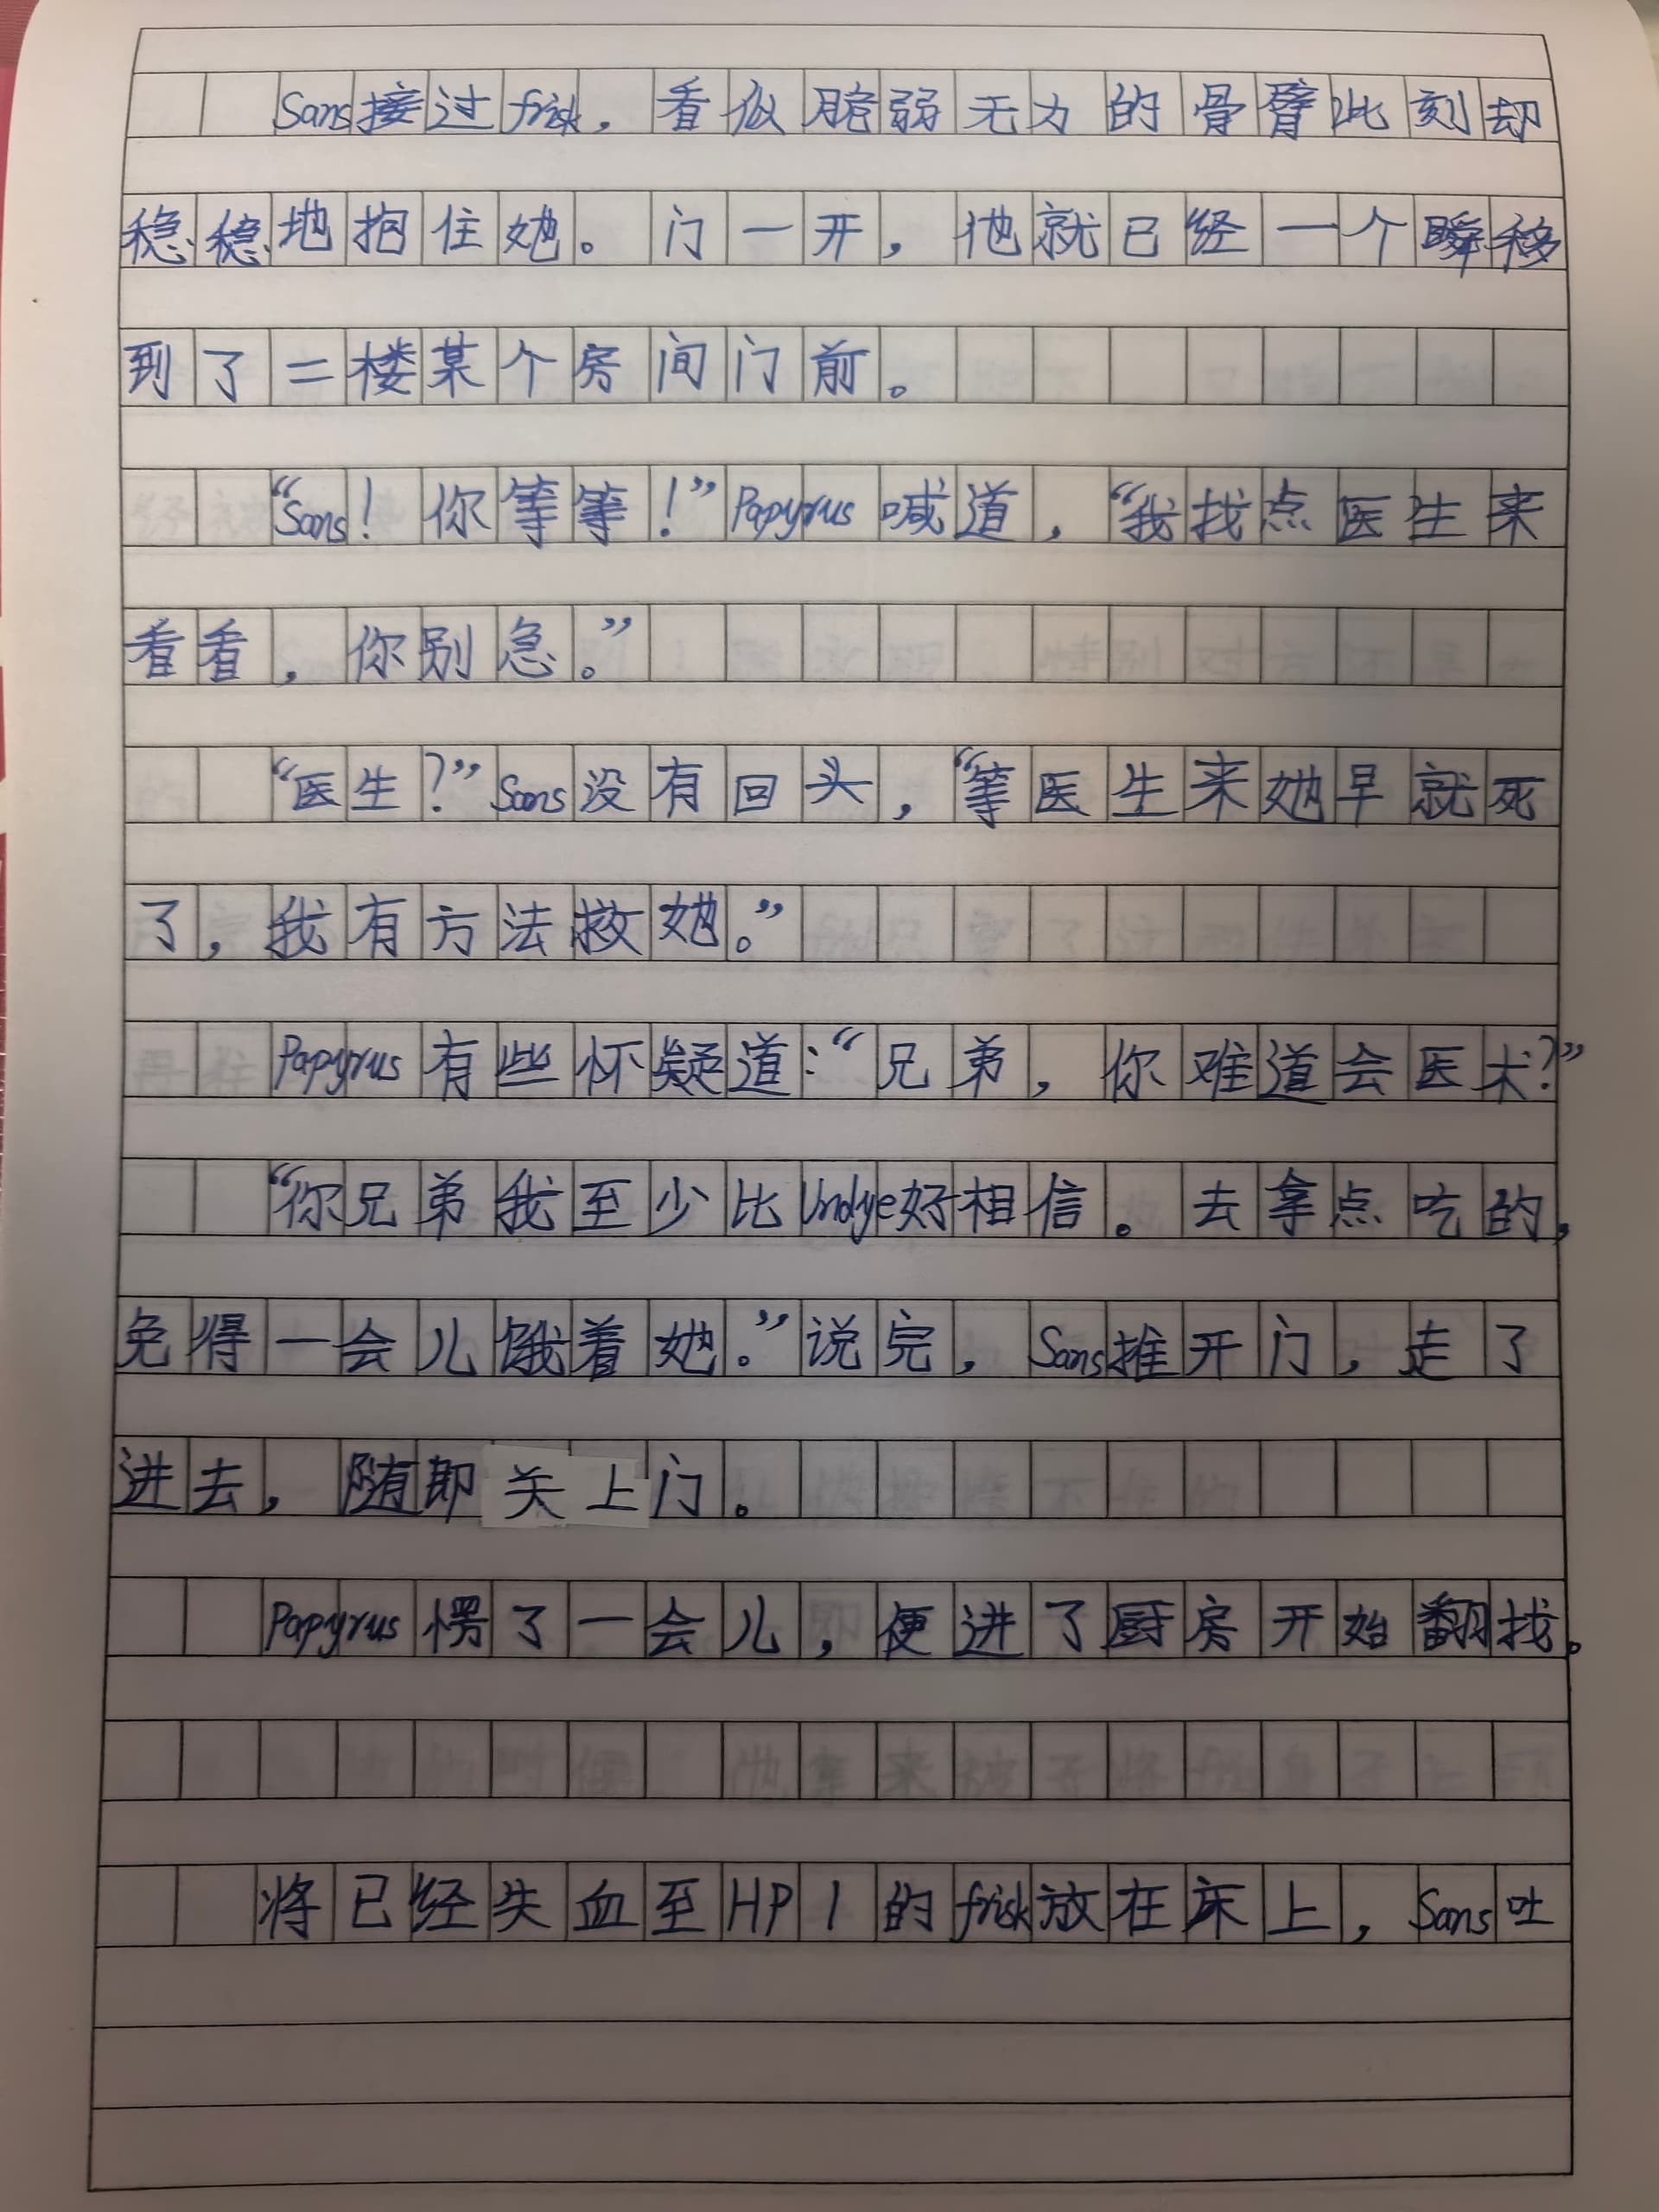 Sans接过frisk，看似脆弱无力的骨臂此刻却
稳稳地抱住她。门一开，他就已经一个瞬移
到了二楼某个房间门前。
“Sans！你等等！”Papyrus喊道，“我找点医生来
看看，你别急。”
“医生？”Sans没有回头，“等医生来她早就死
了，我有方法救她。”
Papyrus有些怀疑道：“兄弟，你难道会医术？”
“你兄弟我至少比Undye好相信。去拿点吃的，
免得一会儿饿着她。”说完，Sans推开门，走了
进去，随即关上门。
Papyrus愣了一会儿，便进了厨房开始翻找。
将已经失血至HP1的frisk放在床上，Sans吐